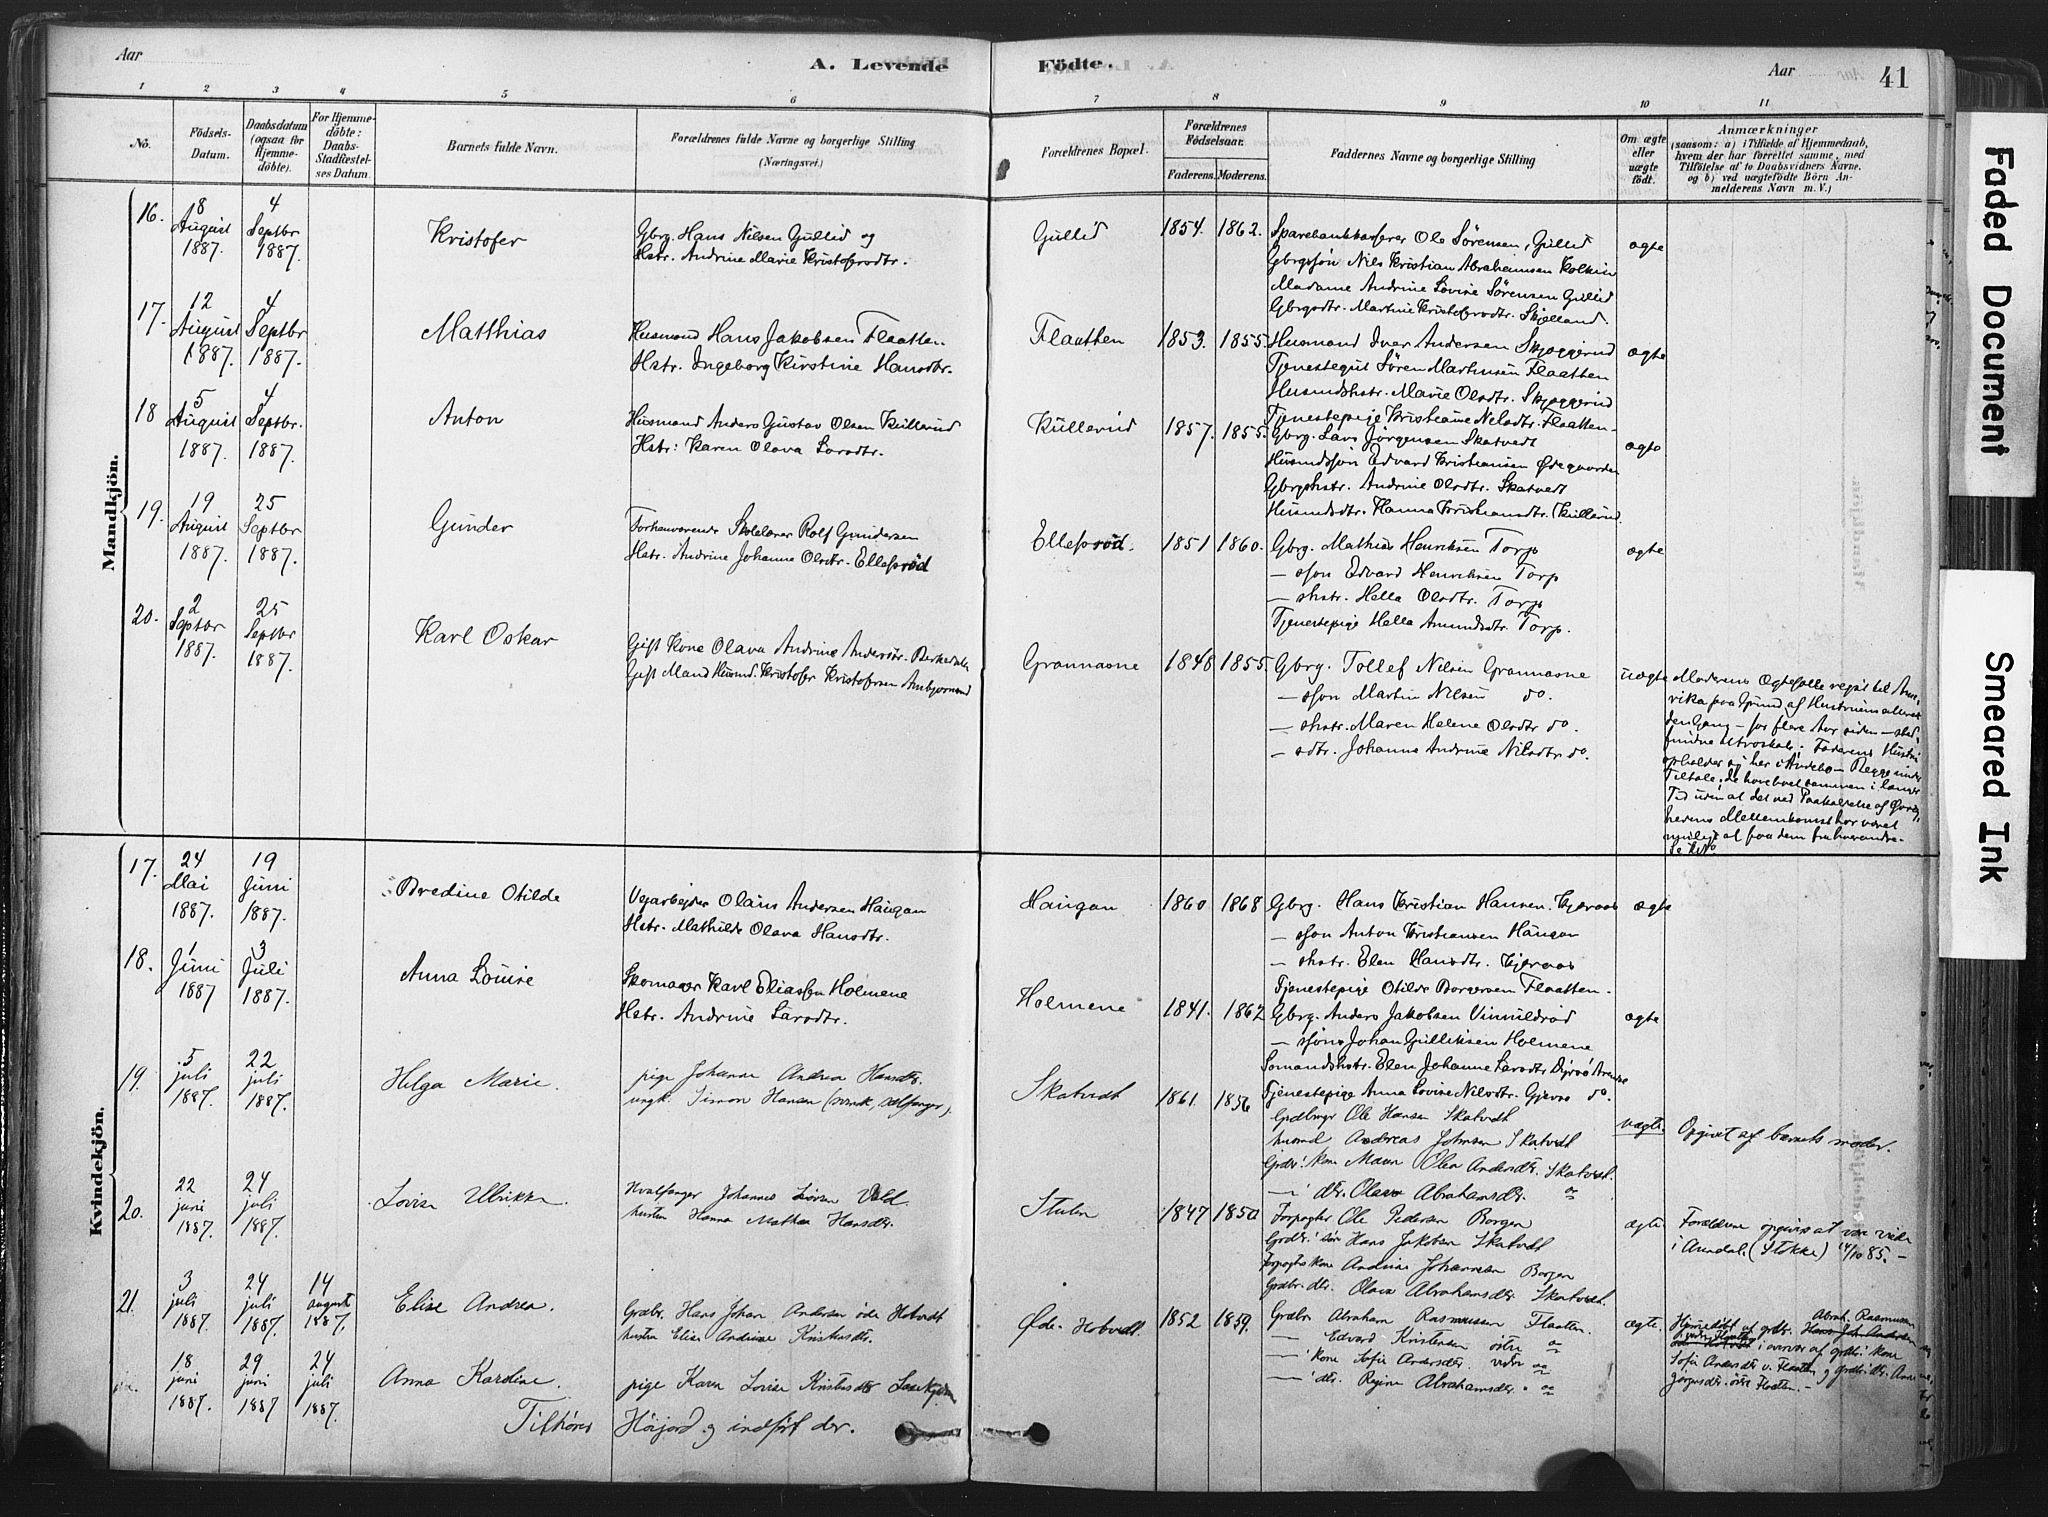 Aar
A. Levende
Födte.
Aar
41
1 2 3 4 5 6 7 8 9 10 11
No.
Födsels-Datum.
Daabsdatum (ogsaa for Hjemmedöbte).
For Hjemmedöbte: Daabs-Stadfæstelses Datum.
Barnets fulde Navn.
Forældrenes fulde Navne og borgerlige Stilling (Næringsvei.)
Forældrenes Bopæl.
Forældrenes Födselsaar.
Faderens. Moderens.
Faddernes Navne og borgerlige Stilling
Om ægte eller uægte födt.
Anmærkninger
(saasom: a) i Tilfælde af Hjemmedaab, hvem der har forrettet samme, med Tilföielse af to Daabsvidners Navne, og b) ved uægtefödte Börn Anmelderens Navn m. V.)
Mandkjön.
16. 8 August 1887. 4 Septbr 1887.
Kristofer
Gbrg. Hans Nilsen Gullid og
Hstr. Andrine Marie Kristofersdtr.
Gullid 1854. 1862.
Sparebankkasserer Ole Sörensen, Gullid
Gbrgssön Nils Kristian Abrahamsen
Madame Andrine Lovise Sörensen Gullid
Gbrgsdtr. Martine Kristofersdtr. Skjelland.
ægte
17. 12 August 1887. 4 Septbr 1887.
Matthias
Husmand Hans Jakobsen Flaatten
Hstr. Ingeborg Kirstine Hansdtr.
Flaatten 1853. 1855.
Husmand Iver Andersen Skjæggerud
Tjenestegut Sören Martinsen Flaatten
Husmdshstr. Marie Olsdtr. Skjæggerud
Tjenestepige Kristiane Nilsdtr. Flaatten
ægte
18 5 August 1887. 4 Septbr. 1887.
Anton
Husmand Anders Gustav Olsen Kullerud
Hstr: Karen Olava Larsdtr.
Kullerud 1857. 1855.
Gbrg. Lars Jörgensen Skatvedt
Husmdssön Edvard Kristiansen Ødegaarden
Gbrgshstr. Andrine Olsdtr. Skatvedt
Husmdsdtr. Hanna Kristiansdtr. Kullerud.
ægte
19. 19 August 1887. 25 Septbr 1887.
Gunder
Forhenværende Skolelærer Rolf Gundersen
Hstr. Andrine Johanne Olsdtr. Ellefsröd
Ellefsröd. 1851 1860.
Gbrg. Mathias Henriksen Torp
— sön Edvard Henriksen Torp
— shstr. Hella Olsdtr. Torp
Tjenestepige Hella Amundsdtr. Torp.
ægte
20. 2 Septbr 1887. 25 Septbr 1887.
Karl Oskar
Gift Kone Olava Andrine Andersdtr. Berkedalen
Gift Mand Husmd. Kristofer Kristofersen
Grannæsne 1848 1855.
Gbrg. Tollef Nilsen Grannæsne
— sön Martin Nilsen do.
— shstr. Maren Helene Olsdtr do
— sdtr. Johanne Andrine Nilsdtr do.
uægte
Moderens Ægtefælle reist til Amerika paa Grund af Hustruens allerede den Gang — for flere Aar siden — stedfundne Utroskab; Faderens Hustru opholder sig her i Andebo. Begge under Tiltale; de have boet sammen i længre Tid uden at det ved Paakaldelse af Øvrighedens Mellemkomst har været muligt at faa dem fra hverandre.
Kvindekjön.
17. 24 Mai 1887. 19 Juni 1887.
Bredine Otilde
Veiarbeider Olaus Andersen Haugan
Hstr. Mathilde Olava Hansdtr.
Haugan 1860 1868
Gbrg. Hans Kristian Hansen. Gjeraas
— sön Anton Kristiansen Haugan
— shstr. Elen Hansdtr. Gjeraas
Tjenestepige Otilde Borgersen Flaatten.
ægte
18. 1 Juni 1887 3 Juli 1887.
Anna Louise
Skomager Karl Eliassen Holmene
Hstr. Andrine Larsdtr.
Holmene 1841. 1862
Gbrg. Anders Jakobsen Vinnulröd
— sön Johan Gulliksen Holmene
Sömandshstr. Elen Johanne Larsdtr
Tjenestepige Anna Lovise Nilsdtr. Gjeraas do.
ægte
19. 5 juli 1887. 22 juli 1887.
Helga Marie.
pige Johanne Andrea Hansdtr.
ungk. Simon Hansen (svensk, sælfanger).
Skatvedt 1861. 1856
Grdbrgr Ole Hansen Skatvedt
husmd Andreas Johnsen Skatvedt
Grdbr.' kone Maren Olea Andersdtr. Skatvedt.
— ' dtr. Olava Abrahamsdtr. do
uægte.
Opgivet af barnets moder.
20. 22 juni 1887. 24 juli 1887.
Lovise Ulrikke.
Hvalfanger Johannes Larsen
hustru Hanna Mathea Hansdtr.
Stulen 1847 1850
Forpagter Ole Pedersen Borgen
Grdbr.' sön Hans Jakobsen Skatvedt
Forpagters kone Andrine Johannesen Borgen
Grdbr. dtr. Olava Abrahamsdtr. Skatvedt.
ægte.
Forældrene opgives at være viede i Arendal (Stokke) 14/10 85. —
21. 3 juli 1887. 24 juli 1887. 14 august 1887.
Elise Andrea.
Grdbr. Hans Johan Andersen öde Hotvedt
hustru Elise Andrine Kristensdtr.
Øde-Hotvedt. 1852 1859.
Grdbr Abraham Rasmussen Flaatten.
— Edvard Kristensen östre do
— ' kone Sofie Andersdtr. vestre do
— ' dtr. Regine Abrahamsdtr. do
ægte.
Hjemmedöbt af grdbr. Abrah. Rasmussen i overvær af grdbr.' kone Sofie Andersdtr v. Flaatten og grdbr.' dtr. Anne Jörgensdtr. östre Flaatten. —
18 juni 1887. 29 juni 1887 24 juli 1887.
Anna Karoline.
pige Karen Lovise Kristensdtr
Tilhörer Höijord og indfört der.
Faded Document
Smeared Ink